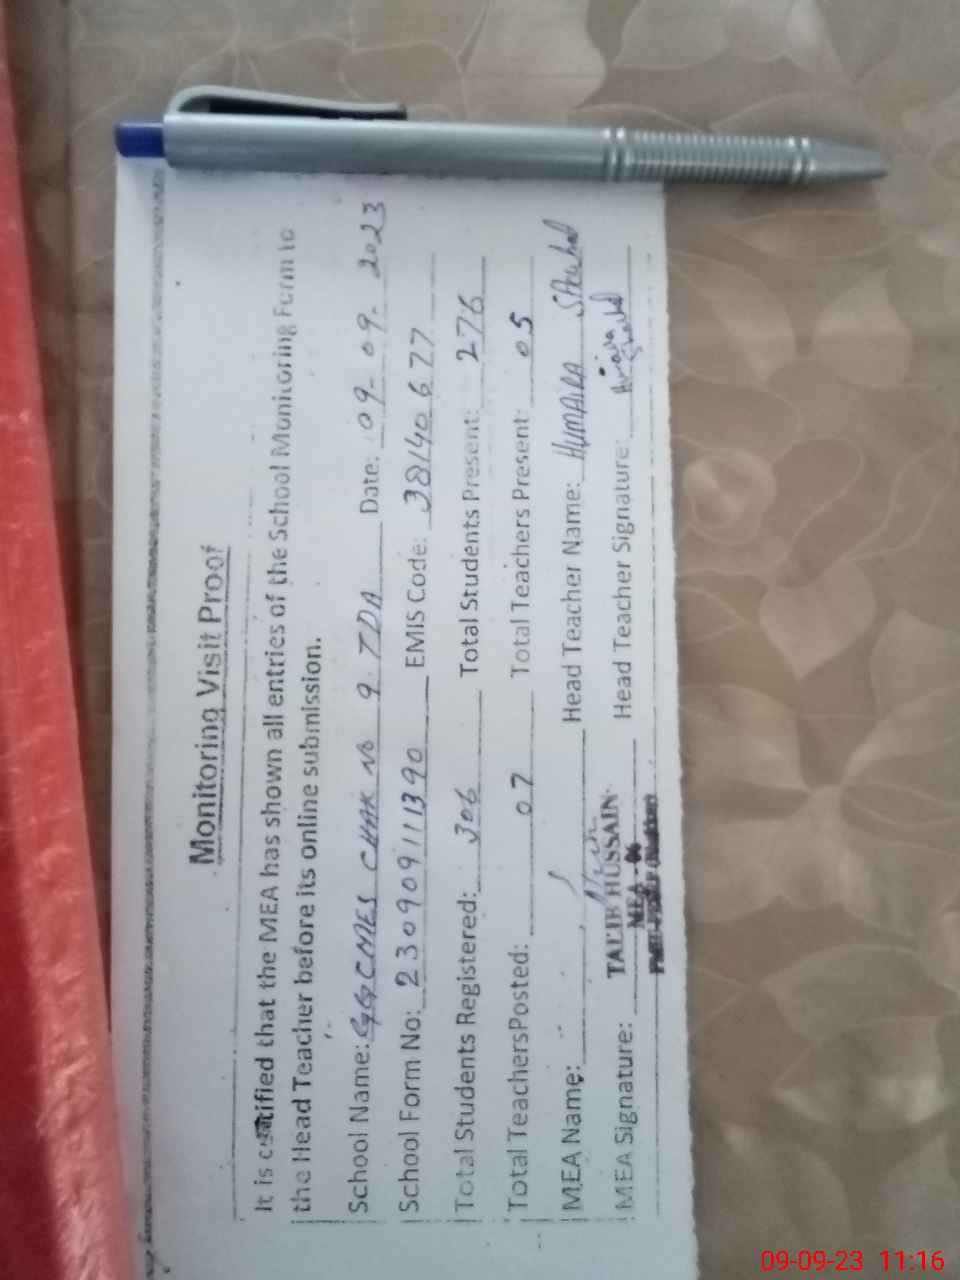 Monitoring Visit Proof
It is certified that the MEA has shown all entries of the School Monitoring Form to
the Head Teacher before its online submission.
School Name: GGCMES CHAK No 9 TDA Date: 09-09-2023
School Form No: 230909111390 EMIS Code: 38140677
Total Students Registered: 306 Total Students Present: 276
Total TeachersPosted: 07 Total Teachers Present: 05
MEA Name: Head Teacher Name: HUMAIRA SHAHID
TALIB HUSSAIN
MEA-06
MEA Signature: Head Teacher Signature: Humaira Shahid
09-09-23 11:16